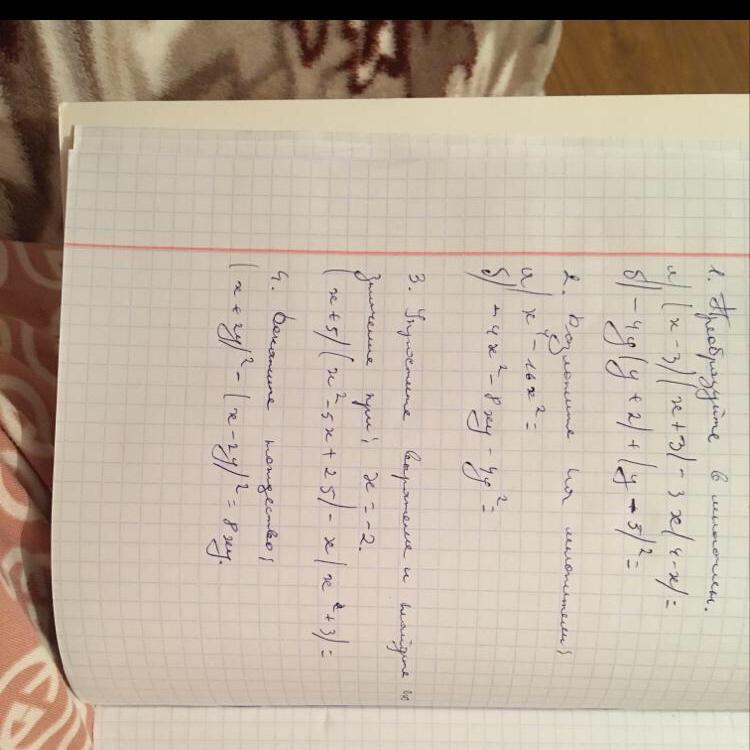 1. Преобразуйте в многочлен.
а) (x-3)(x+3)-3x(4-x)=
б) -4y(y+2)+(y-5)²=
2. Разложите на множители;
а) x⁴-16x²=
б) -4x²-8xy-4y²=
3. Упростите выражение и найдите
значение при; x=-2.
(x+5)(x²-5x+25)-x(x²+3)=
4. Докажите тождество;
(x+2y)²-(x-2y)²=8xy.